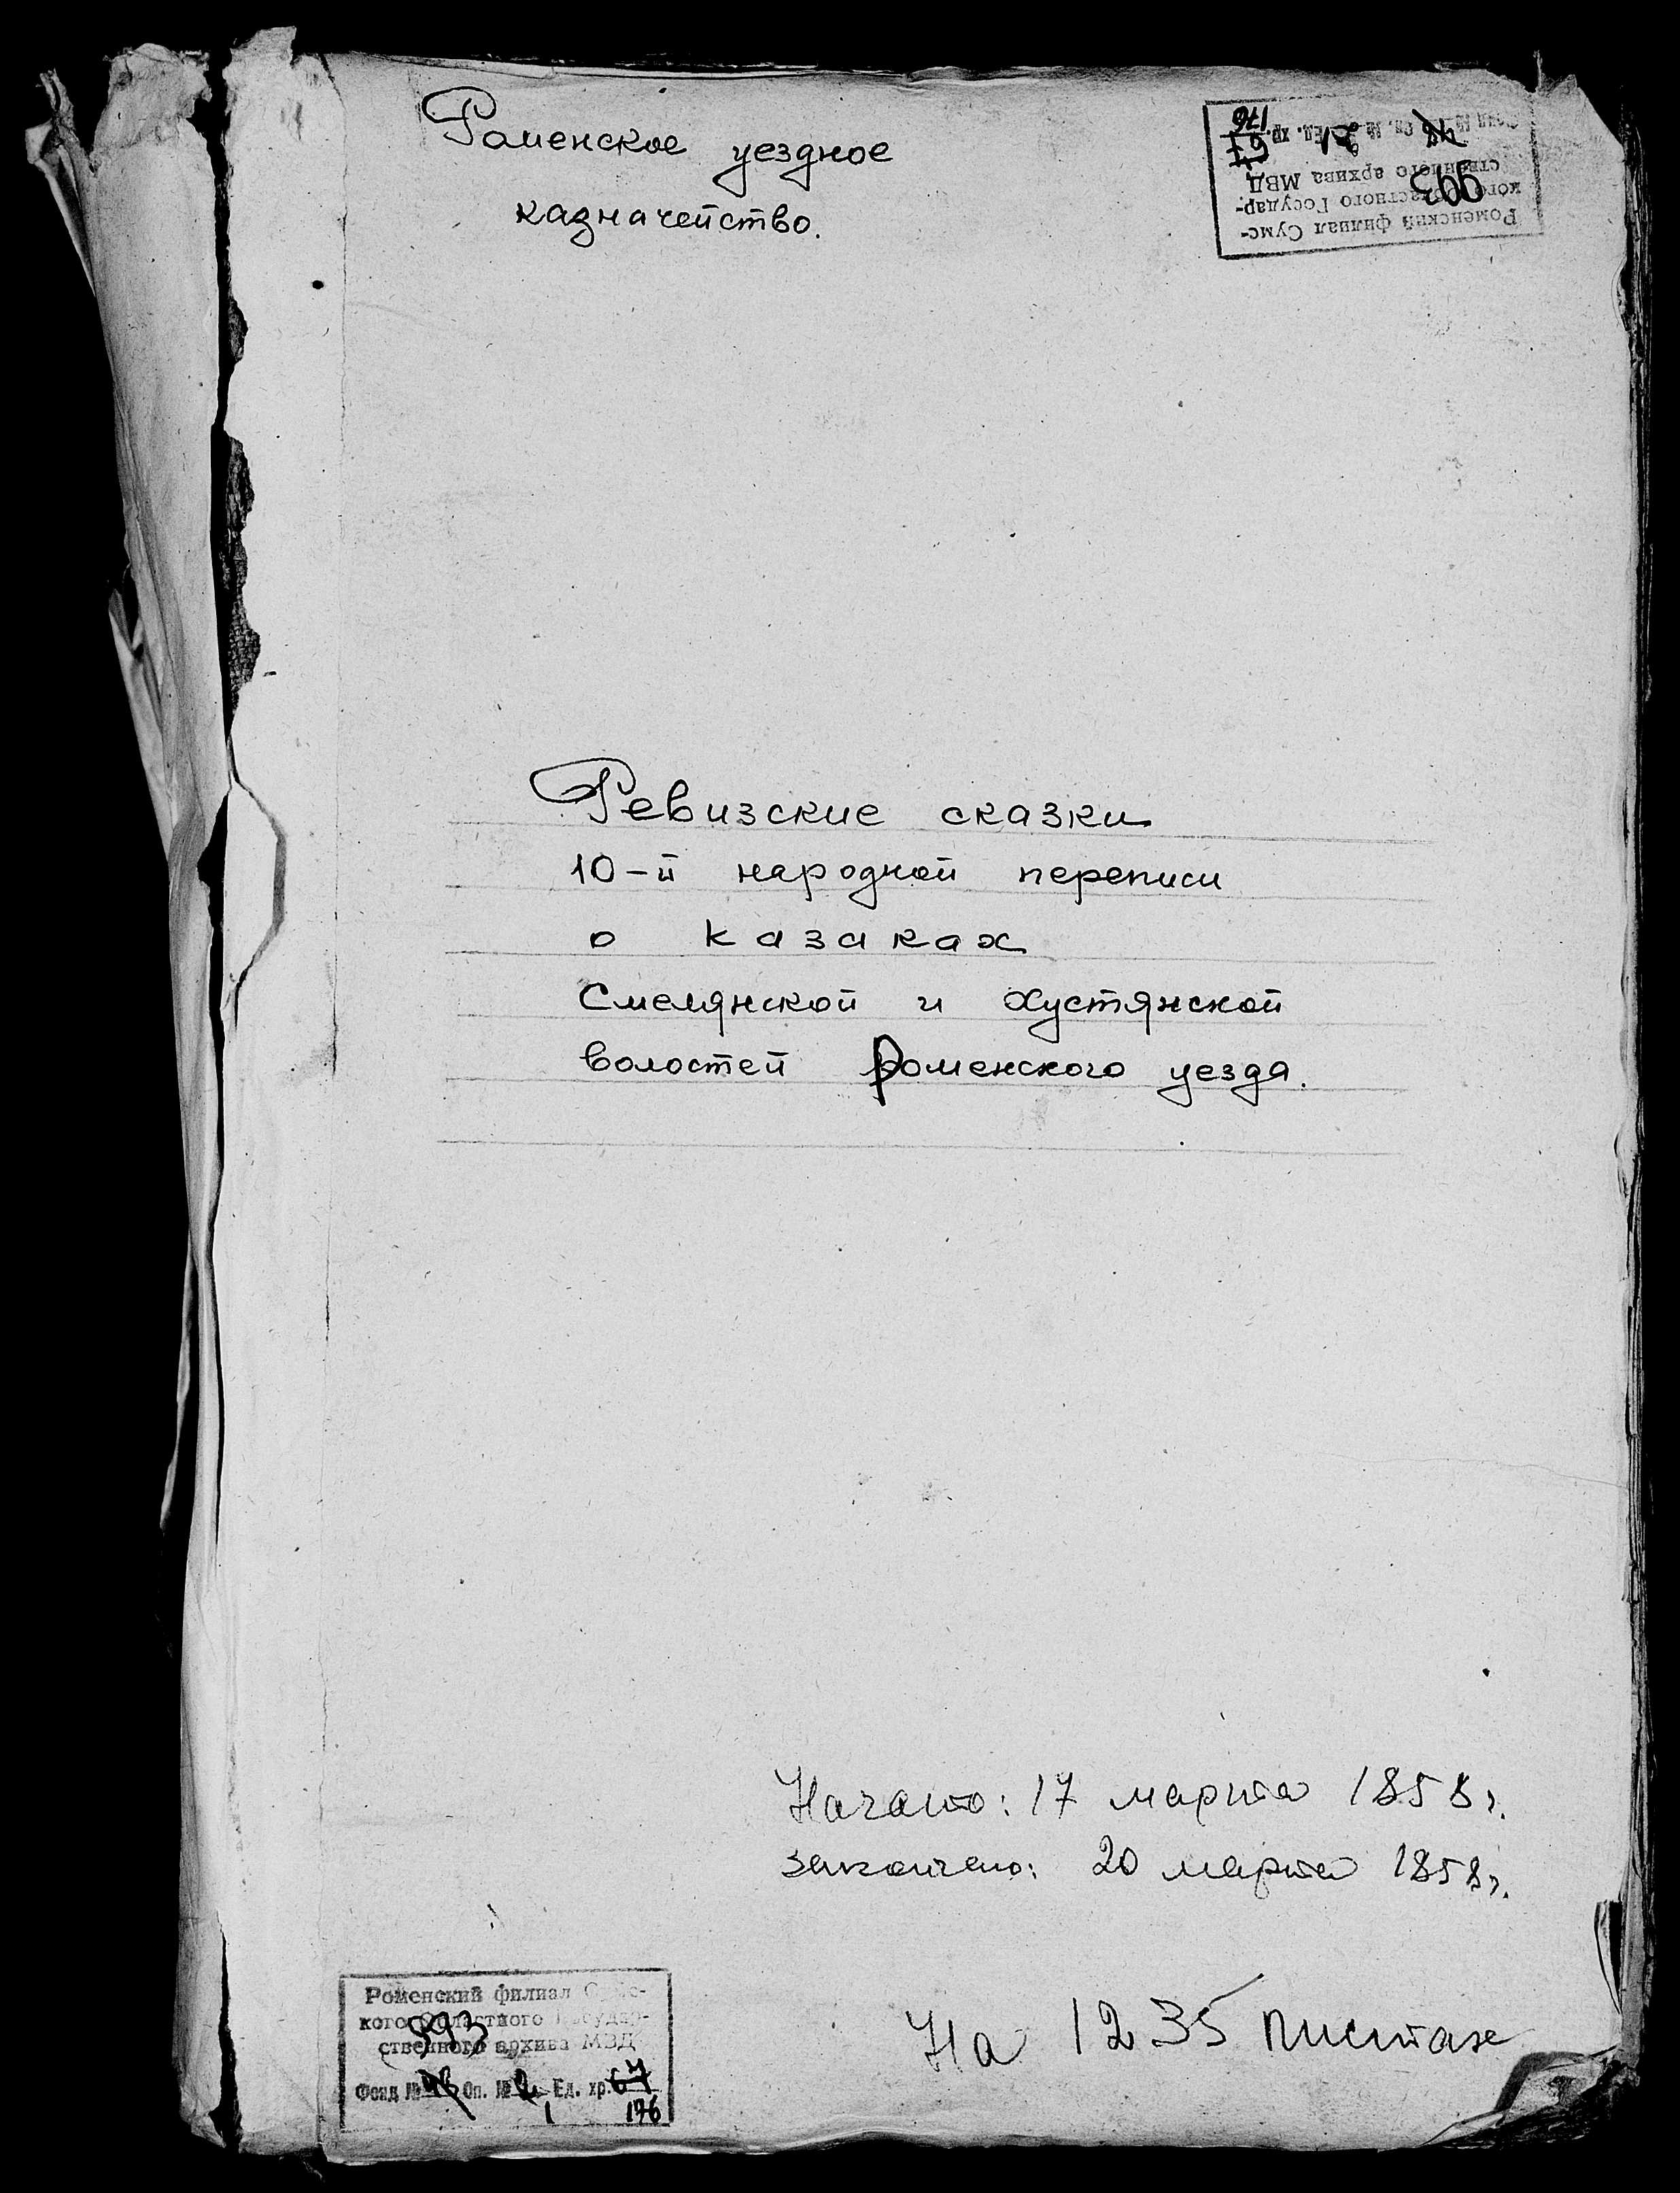 Роменское уездное
казначейство.
Роменский филиал Сумс-
кого Областного Государ-
ственного архива МВД
993
Фонд № Оп. № 2 1 Ед. хр. 67
176
Ревизские сказки
10-й народной переписи
о казаках
Смелянской и Хустянской
волостей Роменского уезда.
Начато: 17 марта 1858 г.
закончено: 20 марта 1858 г.
На 1235 листах
Роменский филиал Сумс-
кого Областного Государ-
993
ственного архива МВД
Фонд № Оп. № 2 Ед. хр. 67
1 176